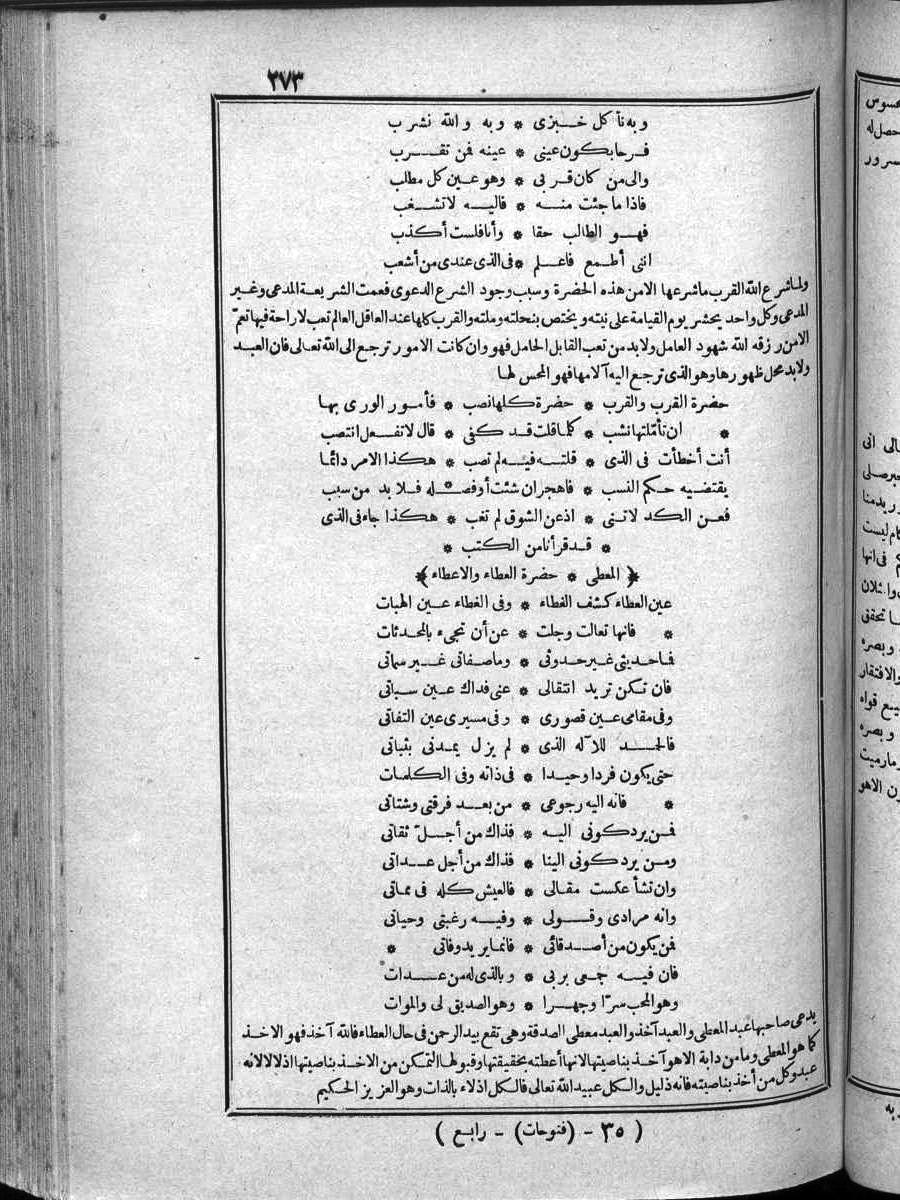 ٢٧٣
وبه نأكل خبزى * وبه والله نشرب
فرحا بكون عينى * عينه فمن تقرب
والى من كان قربى * وهو عين كل مطلب
فاذا ما جئت منه * فاليه لا تشغب
فهو الطالب حقا * وأنا فلست أكذب
اننى أطمع فاعلم * فى الذى عندى من أشعب
ولما شرع الله القرب ما شرعها الا من هذه الحضرة وسبب وجود الشرع الدعوى فعمت الشريعة المدعى وغير
المدعى وكل واحد يحشر يوم القيامة على نيته ويختص بنحلته وملته والقرب كلها عند العاقل العالم تعب لا راحة فيها تعمّ
الا من رزقه الله شهود العامل ولا بد من تعب القابل الحامل فهو وان كانت الامور ترجع الى الله تعالى فان العبد
ولا بد محل ظهورها وهو الذى ترجع اليه آلامها فهو المحس لها
حضرة القرب والقرب * حضرة كلها نصب * فأمور الورى بها
* ان تأمّلتها نشب * كلما قلت قد كفى * قال لا تفعل انتصب
أنت أخطأت فى الذى * قلته فيه لم تصب * هكذا الامر دائما
يقتضيه حكم النسب * فاهجران شئت أو فصله * فلا بد من سبب
فعن الكد لا تنى * اذ عن الشوق لم تغب * هكذا جاء فى الذى
* قد قرأنا من الكتب *
﴿المعطى * حضرة العطاء والاعطاء﴾
عين العطاء كشف الغطاء * وفى الغطاء عين الهبات
* فانها تعالت وجلت * عن أن تجىء بالمحدثات
فما حديثى غير حدوثى * وما صفاتى غير سماتى
فان تكن تريد انتقالى * عنى فذاك عين سباتى
وفى مقامى عين قصورى * وفى مسيرى عين التفاتى
فالحمد للاله الذى * لم يزل يمدنى بثباتى
حتى يكون فردا وحيدا * فى ذاته وفى الكلمات
* فانه اليه رجوعى * من بعد فرقتى وشتاتى
فمن يرد كونى اليه * فذاك من أجلّ ثقاتى
ومن يرد كونى الينا * فذاك من أجل عداتى
وان تشأ عكست مقالى * فالعيش كله فى مماتى
وانه مرادى وقولى * وفيه رغبتى وحياتى
فمن يكون من أصدقائى * فانما يريد وفاتى *
فان فيه جمعى بربى * وبالذى له من عدات
وهو المحب سرّا وجهرا * وهو الصديق لى والموات
يدعى صاحبها عبد المعطى والعبد آخذ والعبد معطى الصدقة وهى تقع بيد الرحمن فى حال العطاء فالله آخذ فهو الاخذ
كما هو المعطى وما من دابة الا هو آخذ بناصيتها لانها أعطته بحقيقتها وقبولها التمكن من الاخذ بناصيتها اذلالا لانه
عبد وكل من أخذ بناصيته فانه ذليل والكل عبيد الله تعالى فالكل اذلاء بالذات وهو العزيز الحكيم
( ٣٥ - (فتوحات) - رابع )